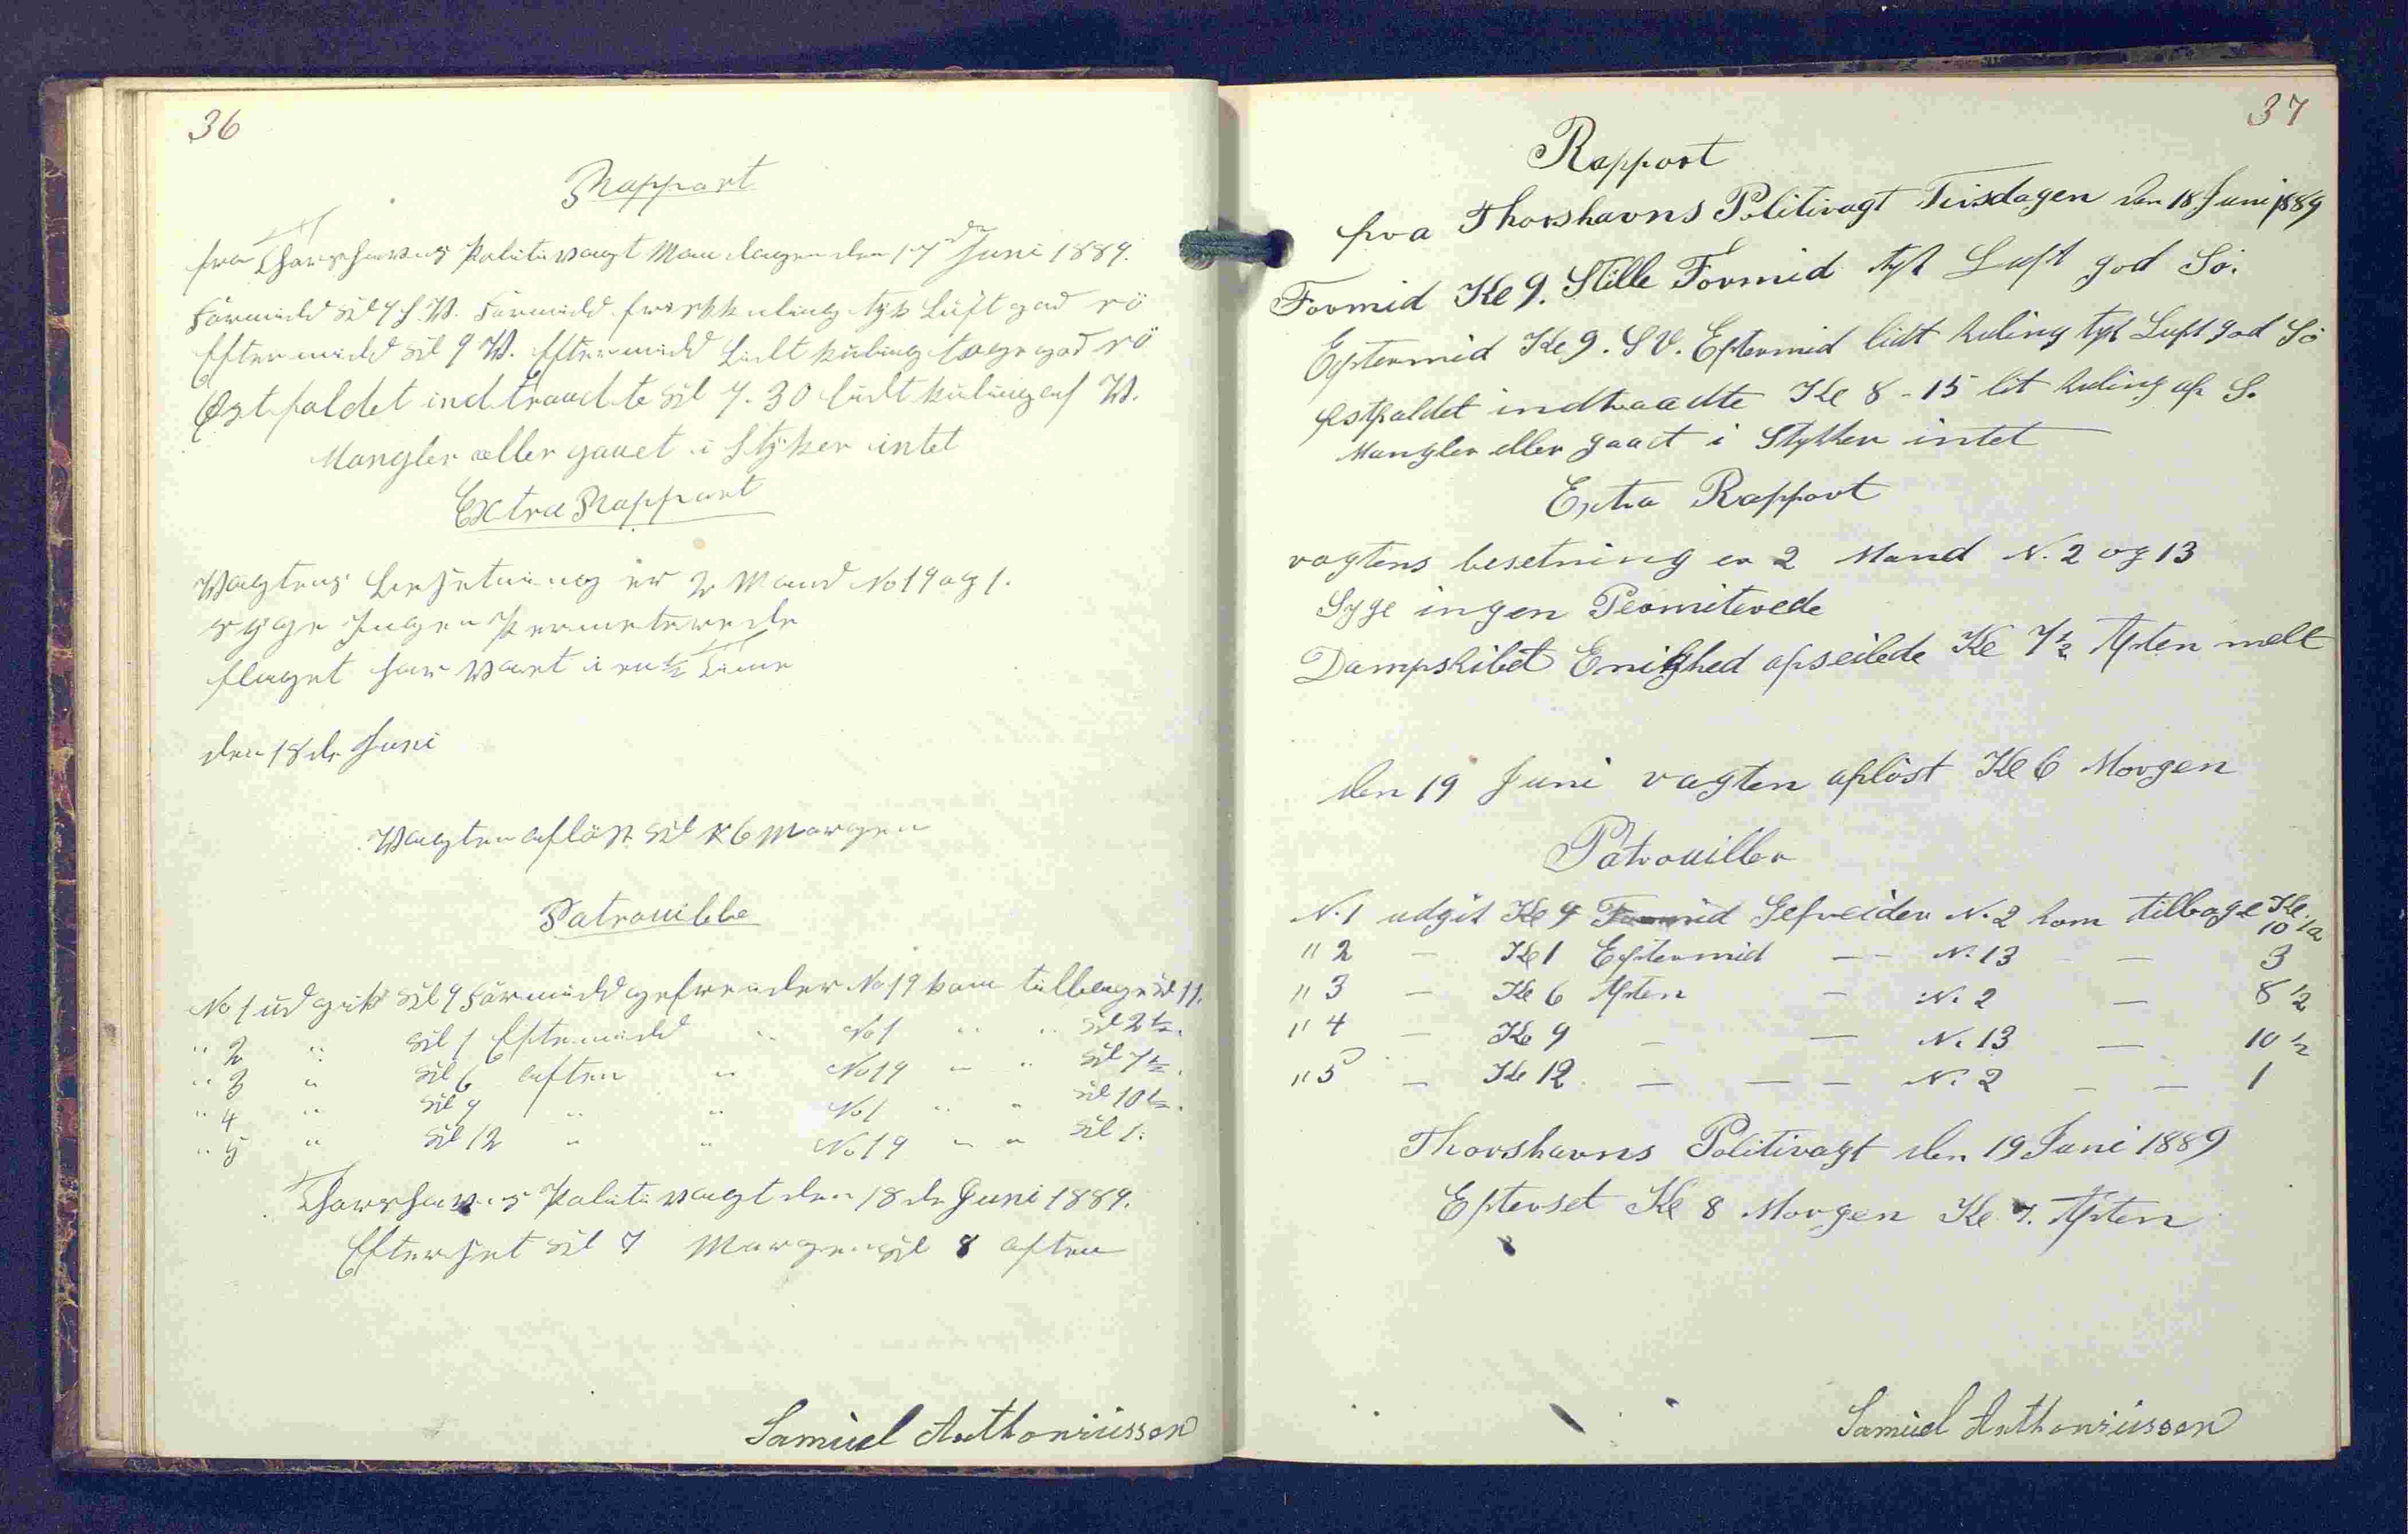 36
Rapport
fra Thorshavns Politivagt Mandagen den 17de Juni 1889.
Formidd Kl 9 S.V. Formidd frisk kuling tyk Luft god sö
Eftermidd Kl 9 V. Eftermidd lidt kuling tage god sö
Østfaldet indtraadte Kl 7.30 lidt kuling af V.
Mangler eller gaaet i Styker intet
Extra Rapport
Vagtens besetning er 2 Mand No 19 og 1.
syge Ingen Permeterede
flaget har vaaet i en 1/2 Time
den 18de Juni
Vagten aflöst Kl 6 Morgen
Patrouille
No 1 udgik Kl 9 Formidd gefreider No 19 kom tilbage Kl 11.
" 2 " Kl 1 Eftermidd " No 1 " " Kl 2 1/2.
" 3 " Kl 6 aften " No 19 " " Kl 7 1/2.
" 4 " Kl 9 " " No 1 " " Kl 10 1/2.
" 5 " Kl 12 " " No 19 " " Kl 1.
Thorshavns Politivagt den 18de Juni 1889.
Efterset Kl 7 Morgen Kl 8 aften
Samúel Anthoniússen
37
Rapport
fra Thorshavns Politivagt Tirsdagen den 18 Juni 1889
Formid Kl 9. Stille Formid tyk Luft god Sö.
Eftermid Kl 9. S V. Eftermid lidt kuling tyk Luft god Sö
Østfaldet indtraadte Kl 8-15 lit kuling af S.
Mangler eller gaaet i Stykker intet
Extra Rapport
vagtens besetning er 2 Mand N. 2 og 13
Syge ingen Permiterede
Dampskibet Enighed afseilede Kl 7 1/2 Aften
den 19 Juni vagten aflöst Kl 6 Morgen
Patrouiller
N. 1 udgik Kl 9 Formid Gefreider N. 2 kom tilbage Kl. 10 1/2
" 2 — Kl 1 Eftermid — — N. 13 — — 3
" 3 — Kl 6 Aften — N. 2 — 8 1/2
" 4 — Kl 9 — — N. 13 — 10 1/2
" 5 — Kl 12 — — — N. 2 — — 1
Thorshavns Politivagt den 19 Juni 1889
Efterset Kl 8 Morgen Kl 7. Aften
Samúel Anthoniússen